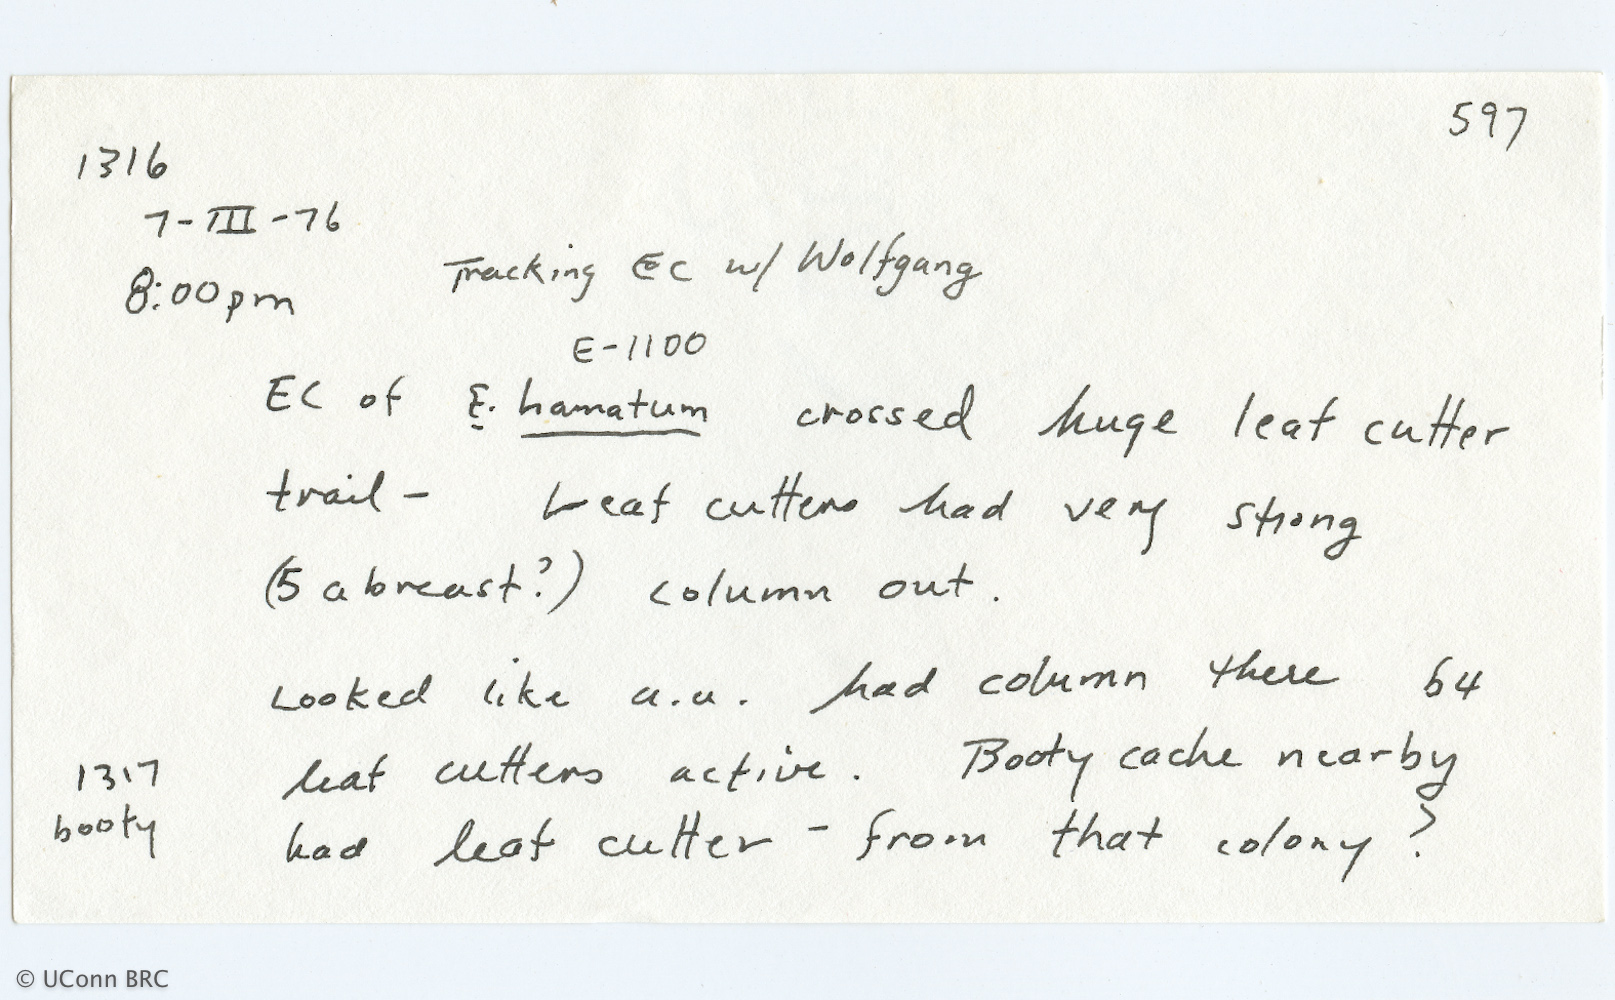 597
1316
7-III-76
8:00pm
Tracking EC w/ Wolfgang
E-1100
EC of E. hamatum crossed huge leaf cutter
trail - Leaf cutters had very strong
(5 abreast?) column out.
Looked like a.a. had column there b4
1317 leaf cutters active. Booty cache nearby
booty had leaf cutter - from that colony?
© UConn BRC